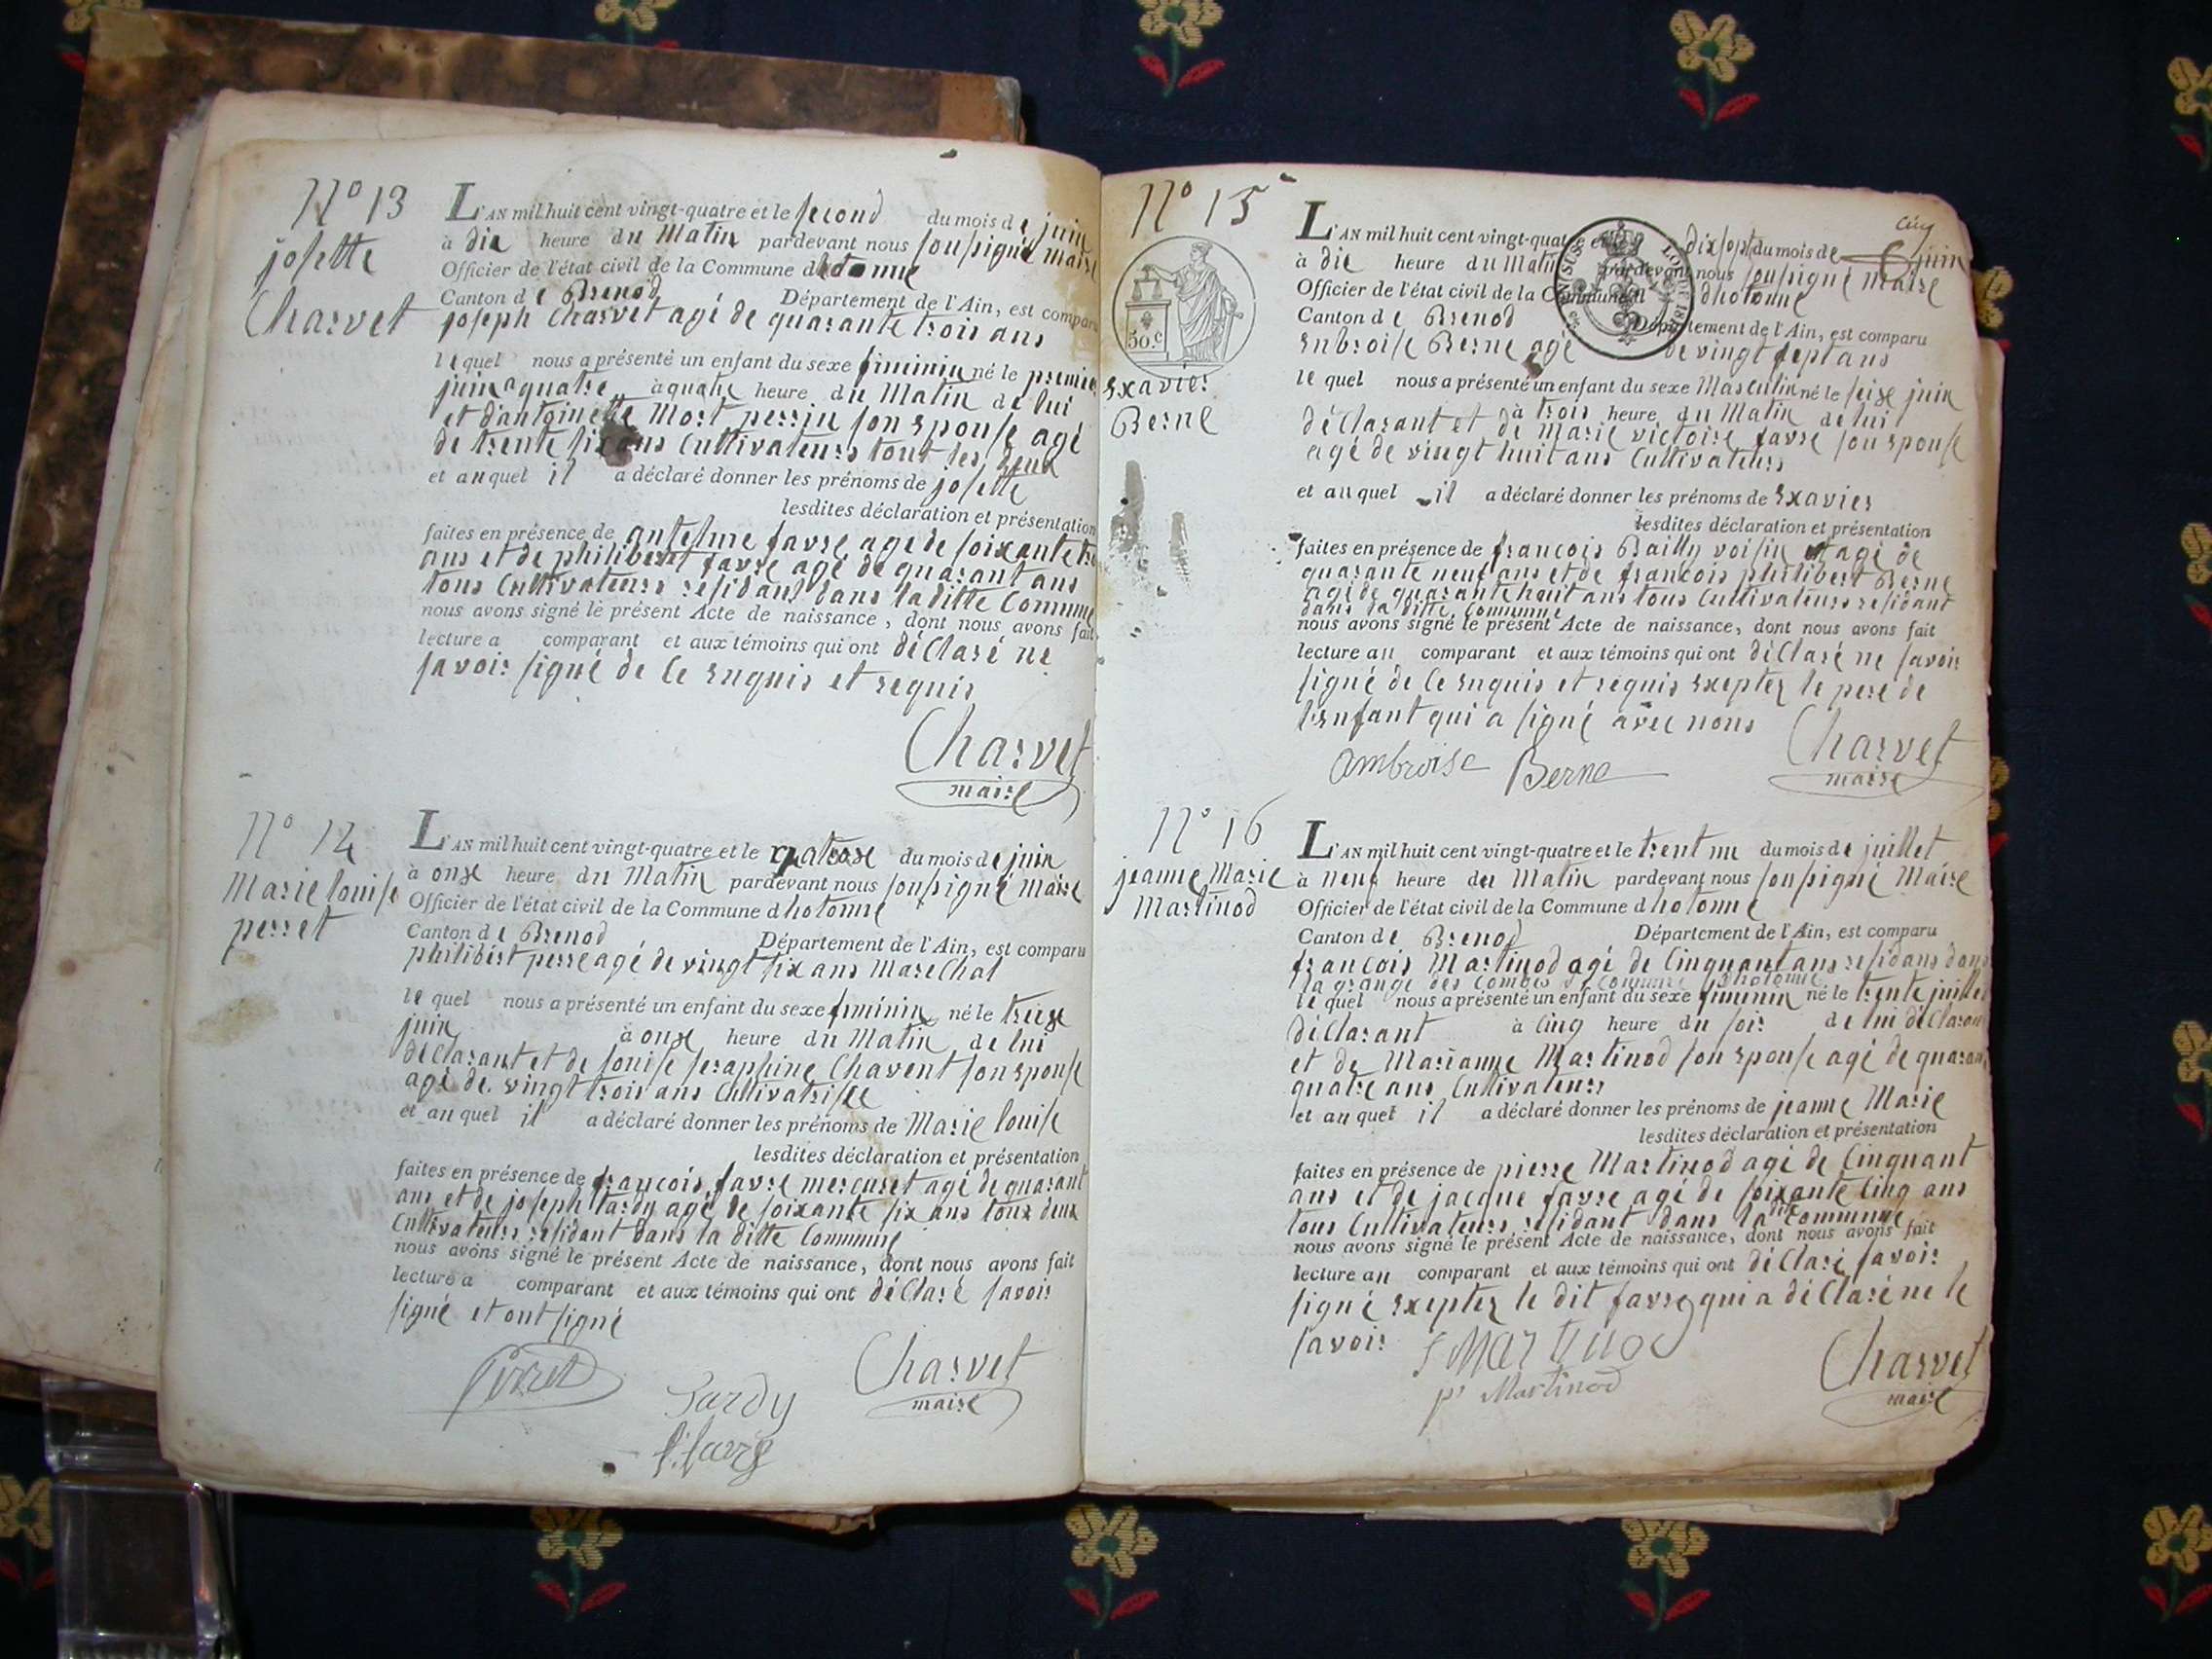 N° 13
josette
Charvet
L'AN mil huit cent vingt-quatre et le second du mois de juin
à dix heure du Matin pardevant nous soussigné maire
Officier de l'état civil de la Commune dhotonne
Canton de Brenod Département de l'Ain, est comparu
joseph Charvet agé de quarante trois ans
lequel nous a présenté un enfant du sexe feminin né le premier
juin a quatre à quatre heure du Matin de lui
et dantoinette Mort perrin son epouse agé
de trente six ans Cultivateurs tout les deux
et auquel il a déclaré donner les prénoms de josette
lesdites déclaration et présentation
faites en présence de antelme favre agé de soixante
ans et de philibert favre agé de quarant ans
tous Cultivateurs residant dans laditte Commune
nous avons signé le présent Acte de naissance, dont nous avons fait
lecture a comparant et aux témoins qui ont déClaré ne
savoir signé de Ce enquis et requis
Charvet
maire
N° 14
Marie louise
perret
L'AN mil huit cent vingt-quatre et le quatorze du mois de juin
à onze heure du Matin pardevant nous soussigné maire
Officier de l'état civil de la Commune dhotonne
Canton de Brenod Département de l'Ain, est comparu
philibert perre agé de vingt six ans MareChal
lequel nous a présenté un enfant du sexe feminin né le treize
juin à onze heure du Matin de lui
déClarant et de louise seraphine Chavent son epouse
agé de vingt trois ans Cultivatrisce
et auquel il a déclaré donner les prénoms de Marie louise
lesdites déclaration et présentation
faites en présence de françois favre mercuret agé de quarant
ans et de joseph tardy agé de soixante six ans tous deux
Cultivateurs residant dans la ditte Commune
nous avons signé le présent Acte de naissance, dont nous avons fait
lecture a comparant et aux témoins qui ont déClaré savoir
signé et ont signé
Perret
Tardy
Charvet
maire
f. favre
N° 15
50.c
Exavier
Berne
L'AN mil huit cent vingt-quatre et dix sept du mois de juin
à dix heure du Matin pardevant nous soussigné Maire
Officier de l'état civil de la Commune dhotonne
Canton de Brenod Département de l'Ain, est comparu
Enbroise Berne agé de vingt sept ans
lequel nous a présenté un enfant du sexe Masculin né le seize juin
à trois heure du Matin de lui
déClarant et de marie victoire favre son epouse
agé de vingt huit ans Cultivateurs
et auquel il a déclaré donner les prénoms de Exavier
lesdites déclaration et présentation
faites en présence de francois Bailly voisin et agé de
quarante neuf ans et de francois philibert Berne
agé de quarante huit ans tous Cultivateurs residant
dans la ditte Commune
nous avons signé le présent Acte de naissance, dont nous avons fait
lecture au comparant et aux témoins qui ont déClaré ne savoir
signé de Ce enquis et requis exepter le pere de
l'enfant qui a signé avec nous
ambroise Berne
Charvet
maire
N° 16
jeanne Marie
Martinod
L'AN mil huit cent vingt-quatre et le trent un du mois de juillet
à neuf heure du Matin pardevant nous soussigné Maire
Officier de l'état civil de la Commune dhotonne
Canton de Brenod Département de l'Ain, est comparu
francois Martinod agé de Cinquant ans residans dans
la grange des Combes Commune dhotonne
lequel nous a présenté un enfant du sexe feminin né le trente juillet
déClarant à Cinq heure du soir de lui déClarant
et de Marianne Martinod son epouse agé de quarant
quatre ans Cultivateurs
et auquel il a déclaré donner les prénoms de jeanne Marie
lesdites déclaration et présentation
faites en présence de pierre Martinod agé de Cinquant
ans et de jacque favre agé de soixante Cinq ans
tous Cultivateurs residant dans la ditte Commune
nous avons signé le présent Acte de naissance, dont nous avons fait
lecture au comparant et aux témoins qui ont déClaré savoir
signé exepter le dit favre qui a déClaré ne le
savoir
f Martinod
p' Martinod
Charvet
maire